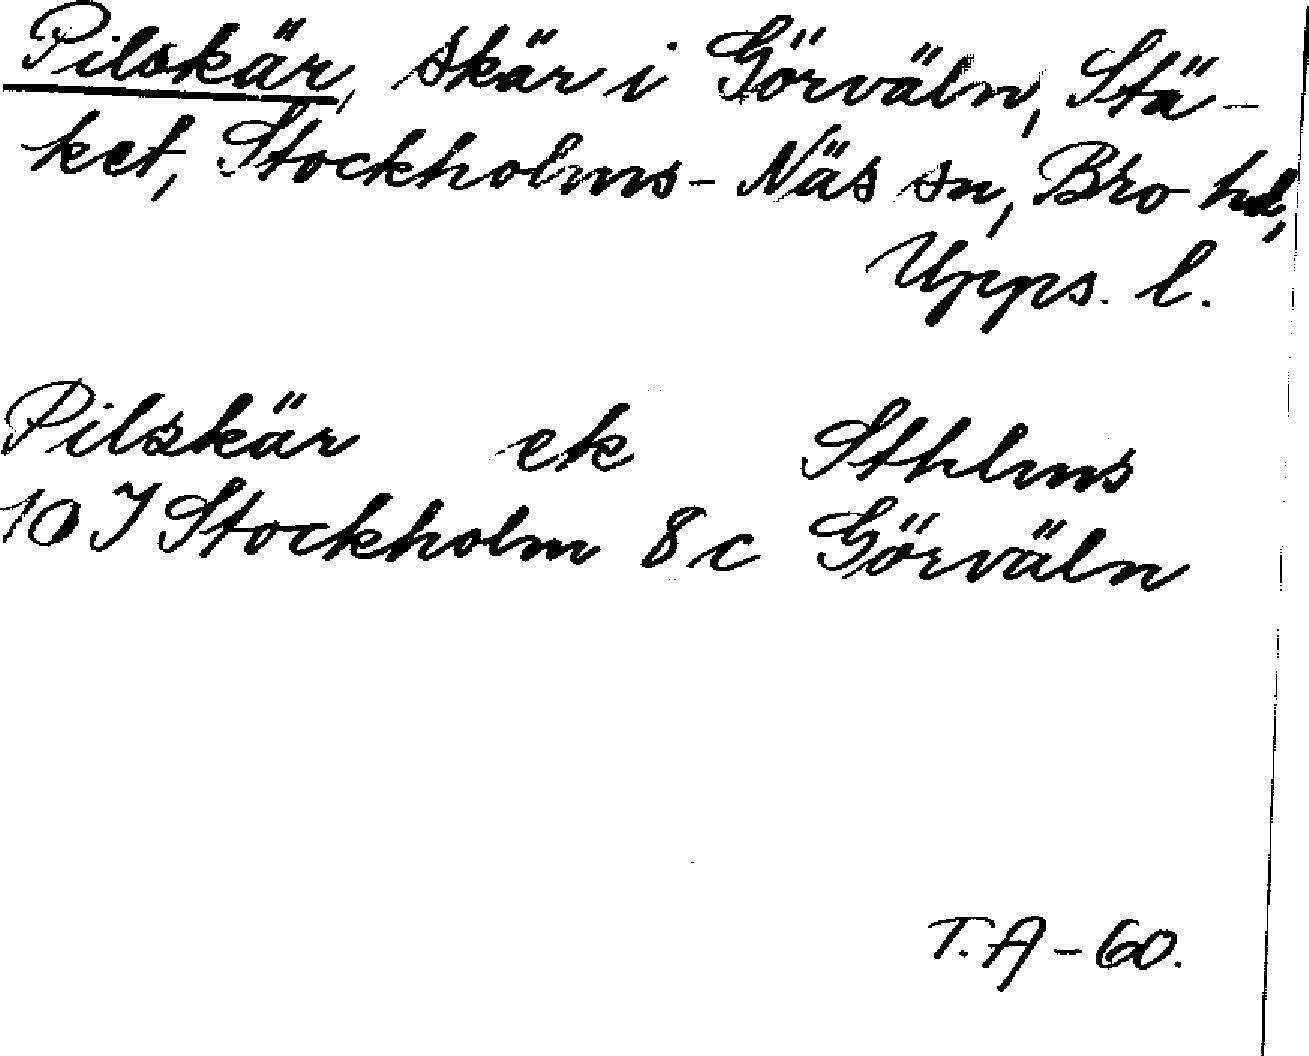 Pilskär, skär i Görväln, Stä-
ket, Stockholms-Näs sn, Bro hd,
Upps. l.
Pilskär ek Sthlms
10 I Stockholm 8 c Görväln
T. A - 60.